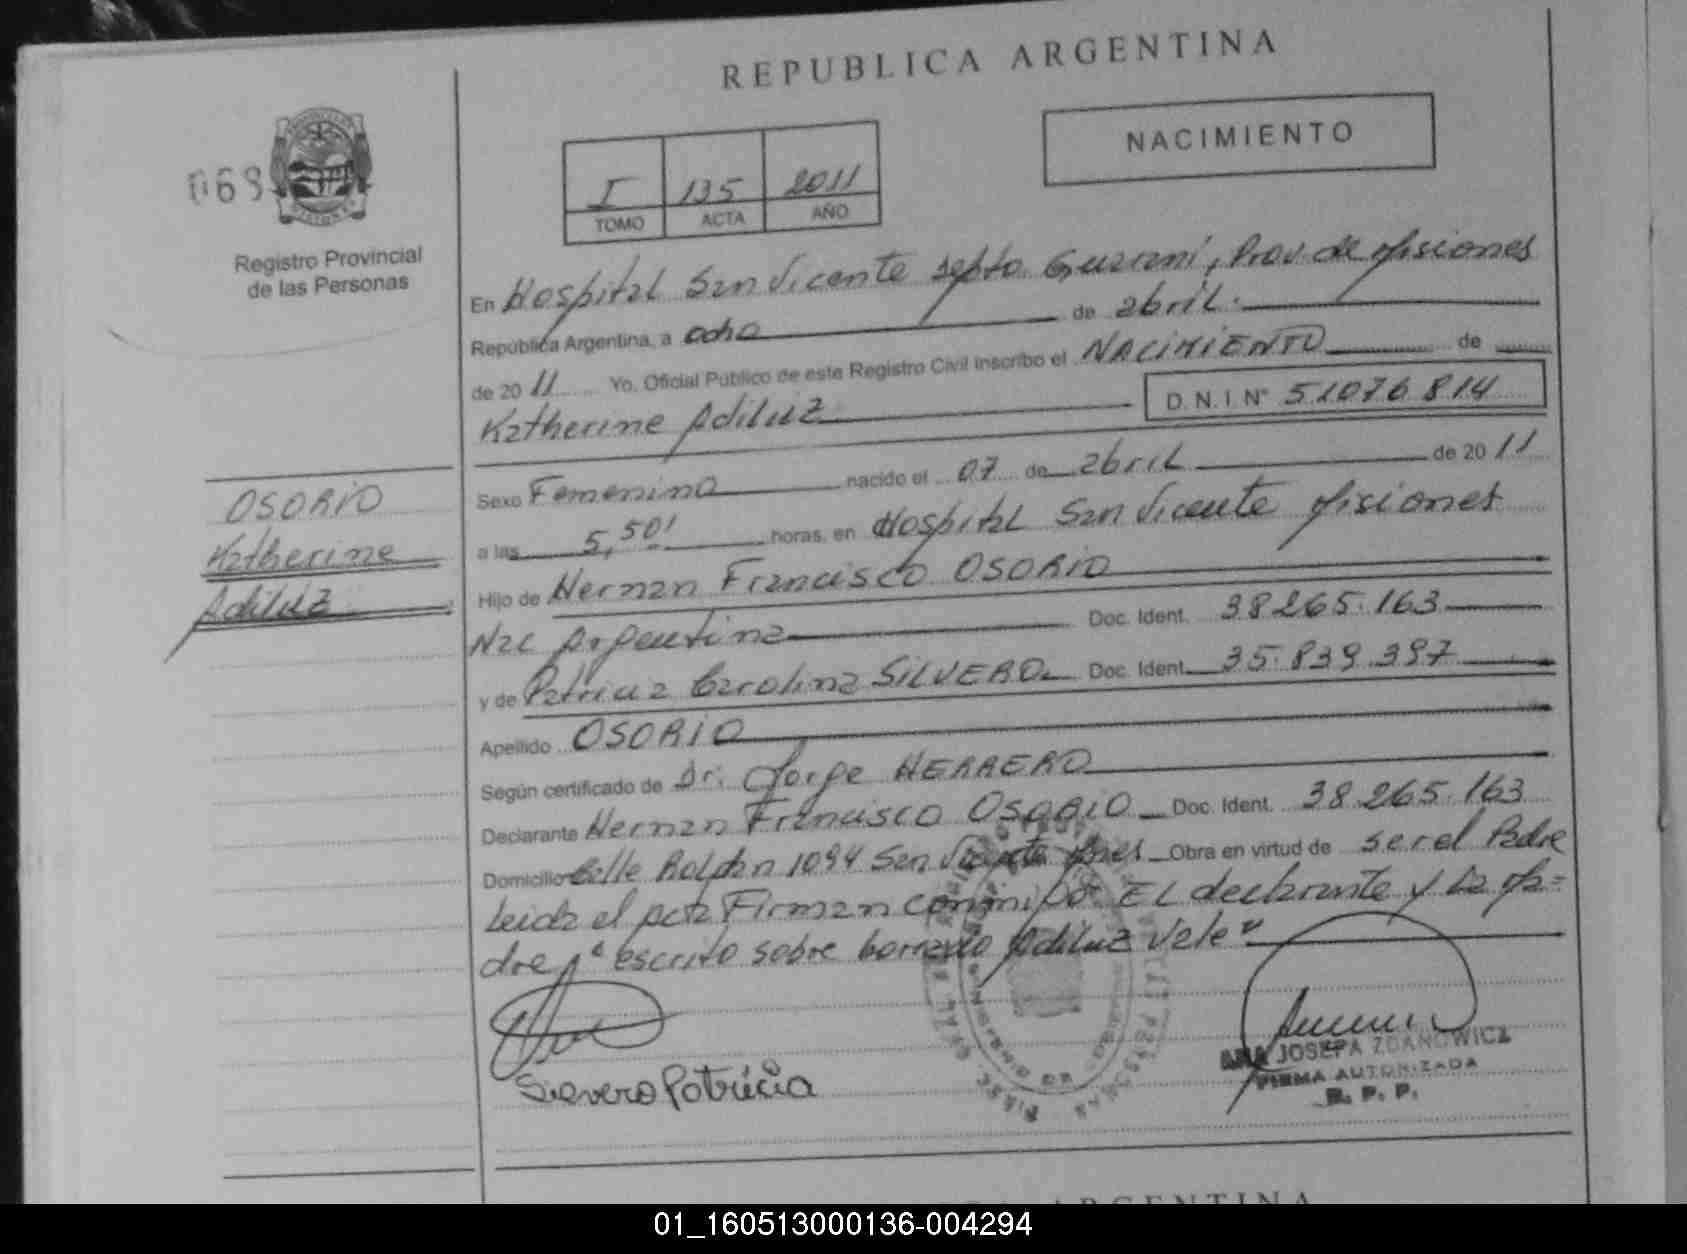 REPUBLICA ARGENTINA
NACIMIENTO
069
I 135 2011
TOMO ACTA AÑO
Registro Provincial
de las Personas
En Hospital San Vicente Depto. Guaraní, Prov. de Misiones
República Argentina, a ocho de abril.
de 2011 Yo. Oficial Público de este Registro Civil Inscribo el NACIMIENTO de
Katherine Adiluz D. N. I. Nº 51076814
Sexo Femenino nacido el 07 de abril de 2011
a las 5,50' horas, en Hospital San Vicente Misiones
Hijo de Hernan Francisco OSORIO
Nac Argentina Doc. Ident. 38265.163
y de Patricia Carolina SILVERO Doc. Ident. 35.839.397
Apellido OSORIO
Según certificado de Dr. Jorge HERRERO
Declarante Hernan Francisco OSORIO Doc. Ident. 38265.163
Domicilio Calle Roldan 1094 San Vicente Mnes Obra en virtud de ser el Padre
Leida el acta Firman conmigo. EL declarante y La Ma=
dre "escrito sobre borrado Adiluz Vale"
OSORIO
Katherine
Adiluz
Silvero Patricia
ANA JOSEFA ZDANOWICZ
FIRMA AUTORIZADA
R. P. P.
ARGENTINA
01_160513000136-004294